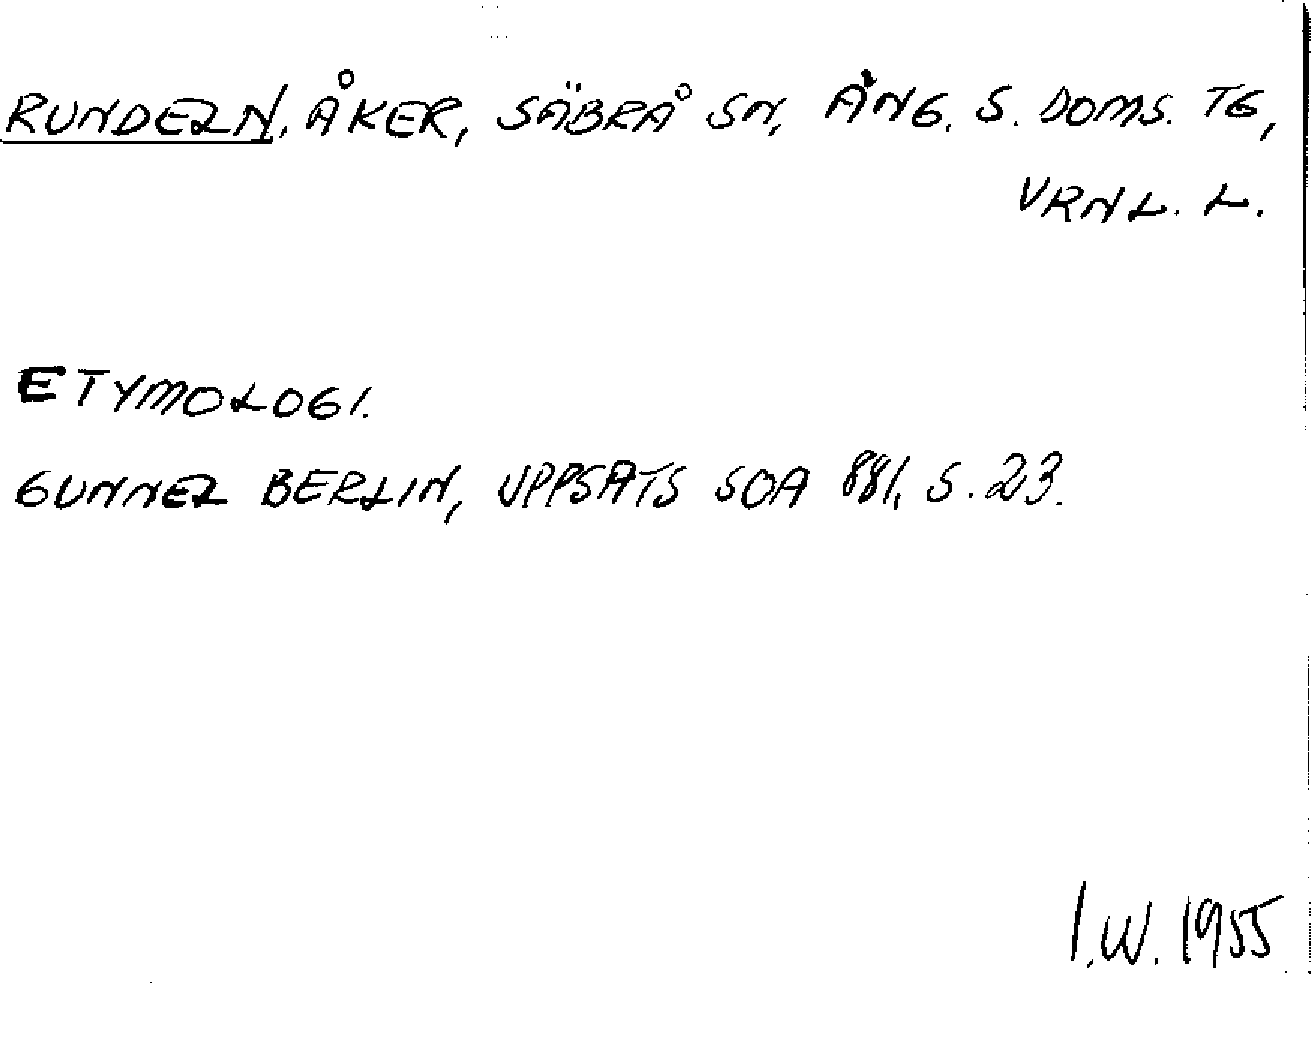 RUNDELN, ÅKER, SÄBRÅ SN, ÅNG. S. DOMS. TG,
VRNL. L.
ETYMOLOGI.
GUNNEL BERLIN, UPPSATS SOA 881, S. 23.
I.W. 1955